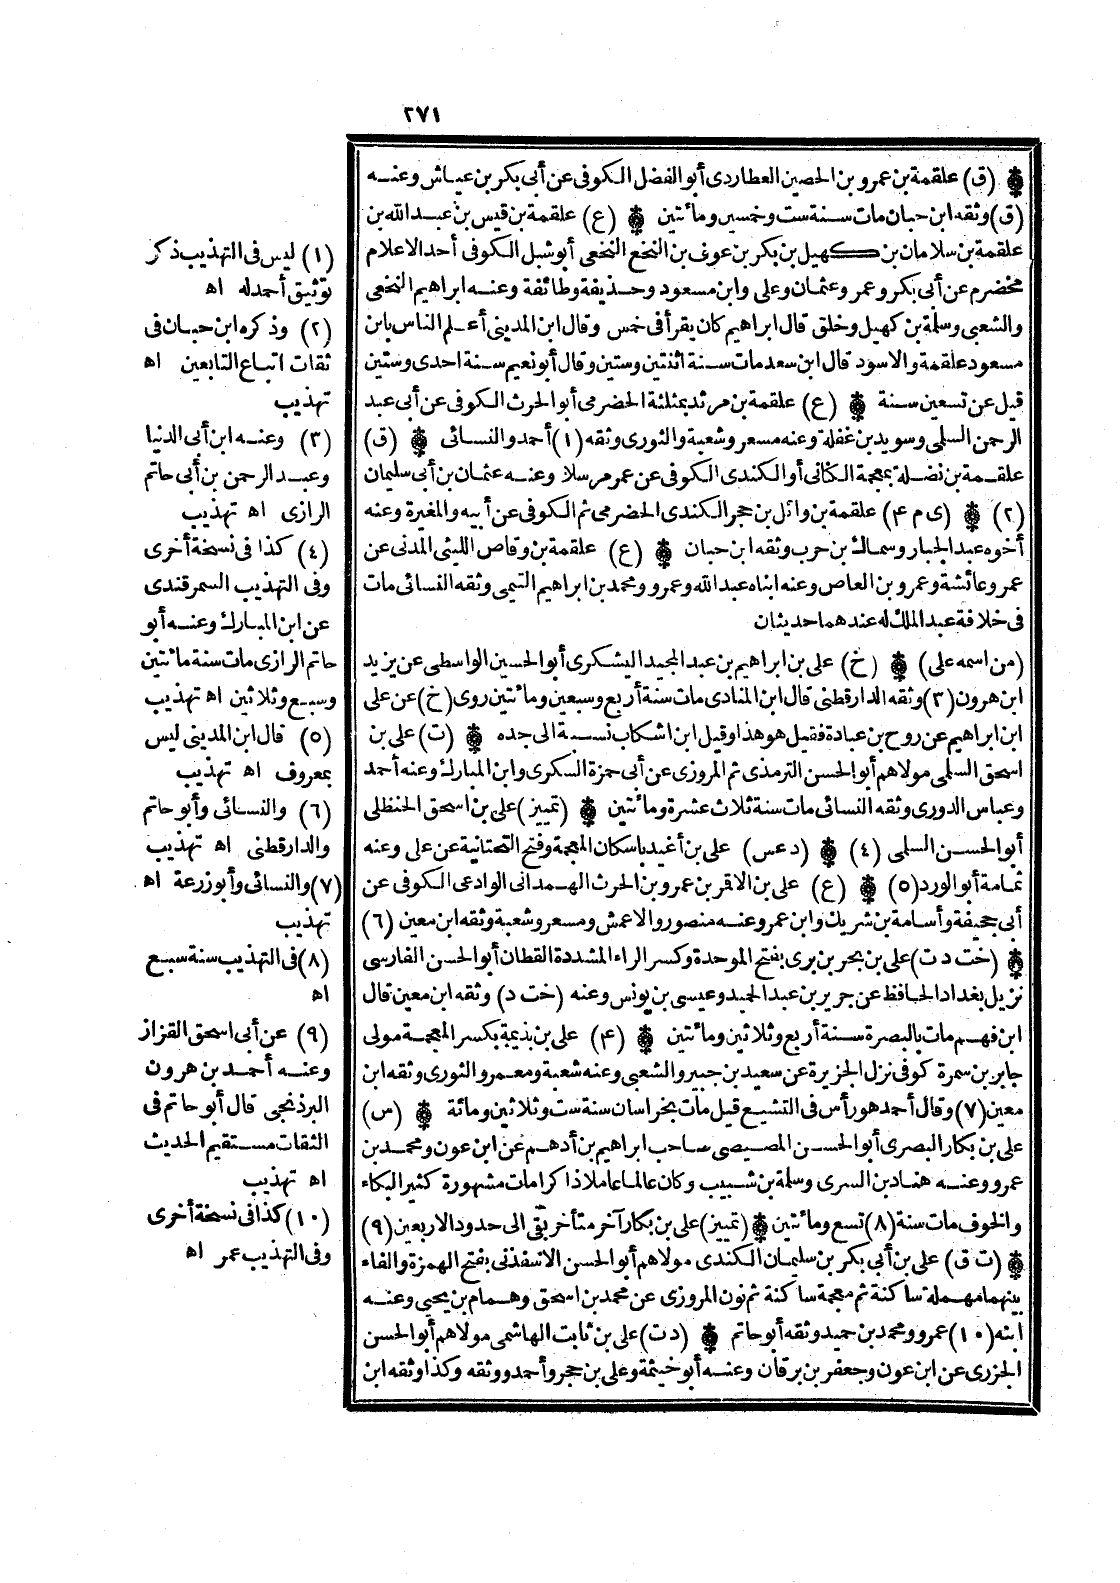 ٢٧١
(ق) علقمة بن عمرو بن الحصين العطاردى أبو الفضل الكوفى عن أبى بكر بن عياش وعنه
(ق) وثقه ابن حبان مات سنة ست وخمسين ومائتين (ع) علقمة بن قيس بن عبد الله بن
علقمة بن سلامان بن كهيل بن بكر بن عوف بن النخع النخعى أبو شبل الكوفى أحد الاعلام
مخضرم عن أبى بكر وعمر وعثمان وعلى وابن مسعود وحذيفة وطائفة وعنه ابراهيم النخعى
والشعبى وسلمة بن كهيل وخلق قال ابراهيم كان يقرأ فى خمس وقال ابن المدينى أعلم الناس بابن
مسعود علقمة والاسود قال ابن سعد مات سنة اثنتين وستين وقال أبو نعيم سنة احدى وستين
قيل عن تسعين سنة (ع) علقمة بن مرثد بمثلثة الحضرمى أبو الحرث الكوفى عن أبى عبد
الرحمن السلمى وسويد بن غفلة وعنه مسعر وشعبة والثورى وثقه (١) أحمد والنسائى (ق)
علقمة بن نضله بمعجمة الكنانى أو الكندى الكوفى عن عمر مرسلا وعنه عثمان بن أبى سليمان
(٢) (ى م ۴) علقمة بن وائل بن حجر الكندى الحضرمى ثم الكوفى عن أبيه والمغيرة وعنه
أخوه عبد الجبار وسماك بن حرب وثقه ابن حبان (ع) علقمة بن وقاص الليثى المدنى عن
عمر وعائشة وعمرو بن العاص وعنه ابناه عبد الله وعمرو ومحمد بن ابراهيم التيمى وثقه النسائى مات
فى خلافة عبد الملك له عندهما حديثان
(من اسمه على) (خ) على بن ابراهيم بن عبد المجيد اليشكرى أبو الحسين الواسطى عن يزيد
ابن هرون (٣) وثقه الدارقطنى قال ابن المنادى مات سنة أربع وسبعين ومائتين روى (خ) عن على
ابن ابراهيم عن روح بن عبادة فقيل هو هذا وقيل ابن اشكاب نسبة الى جده (ت) على بن
اسحق السلمى مولاهم أبو الحسن الترمذى ثم المروزى عن أبى حمزة السكرى وابن المبارك وعنه أحمد
وعباس الدورى وثقه النسائى مات سنة ثلاث عشرة ومائتين (تمييز) على بن اسحق الحنظلى
أبو الحسن السلمى (٤) (د عس) على بن أغيد باسكان المعجمة وفتح التحتانية عن على وعنه
ثمامة أبو الورد (٥) (ع) على بن الاقر بن عمرو بن الحرث الهمدانى الوادعى الكوفى عن
أبى جحيفة وأسامة بن شريك وابن عمر وعنه منصور والاعمش ومسعر وشعبة وثقه ابن معين (٦)
(خت د ت) على بن بحر بن برى بفتح الموحدة وكسر الراء المشددة القطان أبو الحسن الفارسى
نزيل بغداد الحافظ عن جرير بن عبد الحميد وعيسى بن يونس وعنه (خت د) وثقه ابن معين قال
ابن فهم مات بالبصرة سنة أربع وثلاثين ومائتين (۴) على بن بذيمة بكسر المعجمة مولى
جابر بن سمرة كوفى نزل الجزيرة عن سعيد بن جبير والشعبى وعنه شعبة ومعمر والثورى وثقه ابن
معين (٧) وقال أحمد هو رأس فى التشيع قيل مات بخراسان سنة ست وثلاثين ومائة (س)
على بن بكار البصرى أبو الحسن المصيصى صاحب ابراهيم بن أدهم عن ابن عون ومحمد بن
عمرو وعنه هناد بن السرى وسلمة بن شبيب وكان عالما عاملا ذا كرامات مشهورة كثير البكاء
والخوف مات سنة (٨) تسع ومائتين (تمييز) على بن بكار آخر متأخر بقى الى حدود الاربعين (٩)
(ت ق) على بن أبى بكر بن سليمان الكندى مولاهم أبو الحسن الاسفذنى بفتح الهمزة والفاء
بينهما مهملة ساكنة ثم معجمة ساكنة ثم نون المروزى عن محمد بن اسحق وهمام بن يحيى وعنه
ابنه (١٠) عمرو ومحمد بن حميد وثقه أبو حاتم (د ت) على بن ثابت الهاشمى مولاهم أبو الحسن
الجزرى عن ابن عون وجعفر بن برقان وعنه أبو خيثمة وعلى بن حجر وأحمد ووثقه وكذا وثقه ابن
(١) ليس فى التهذيب ذكر
توثيق أحمد له اه
(٢) وذكره ابن حبان فى
ثقات اتباع التابعين اه
تهذيب
(٣) وعنه ابن أبى الدنيا
وعبد الرحمن بن أبى حاتم
الرازى اه تهذيب
(٤) كذا فى نسخة أخرى
وفى التهذيب السمرقندى
عن ابن المبارك وعنه أبو
حاتم الرازى مات سنة مائتين
وسبع وثلاثين اه تهذيب
(٥) قال ابن المدينى ليس
بمعروف اه تهذيب
(٦) والنسائى وأبو حاتم
والدارقطنى اه تهذيب
(٧) والنسائى وأبو زرعة اه
تهذيب
(٨) فى التهذيب سنة سبع
اه
(٩) عن أبى اسحق القزاز
وعنه أحمد بن هرون
البرذنجى قال أبو حاتم فى
الثقات مستقيم الحديث
اه تهذيب
(١٠) كذا فى نسخة أخرى
وفى التهذيب عمر اه